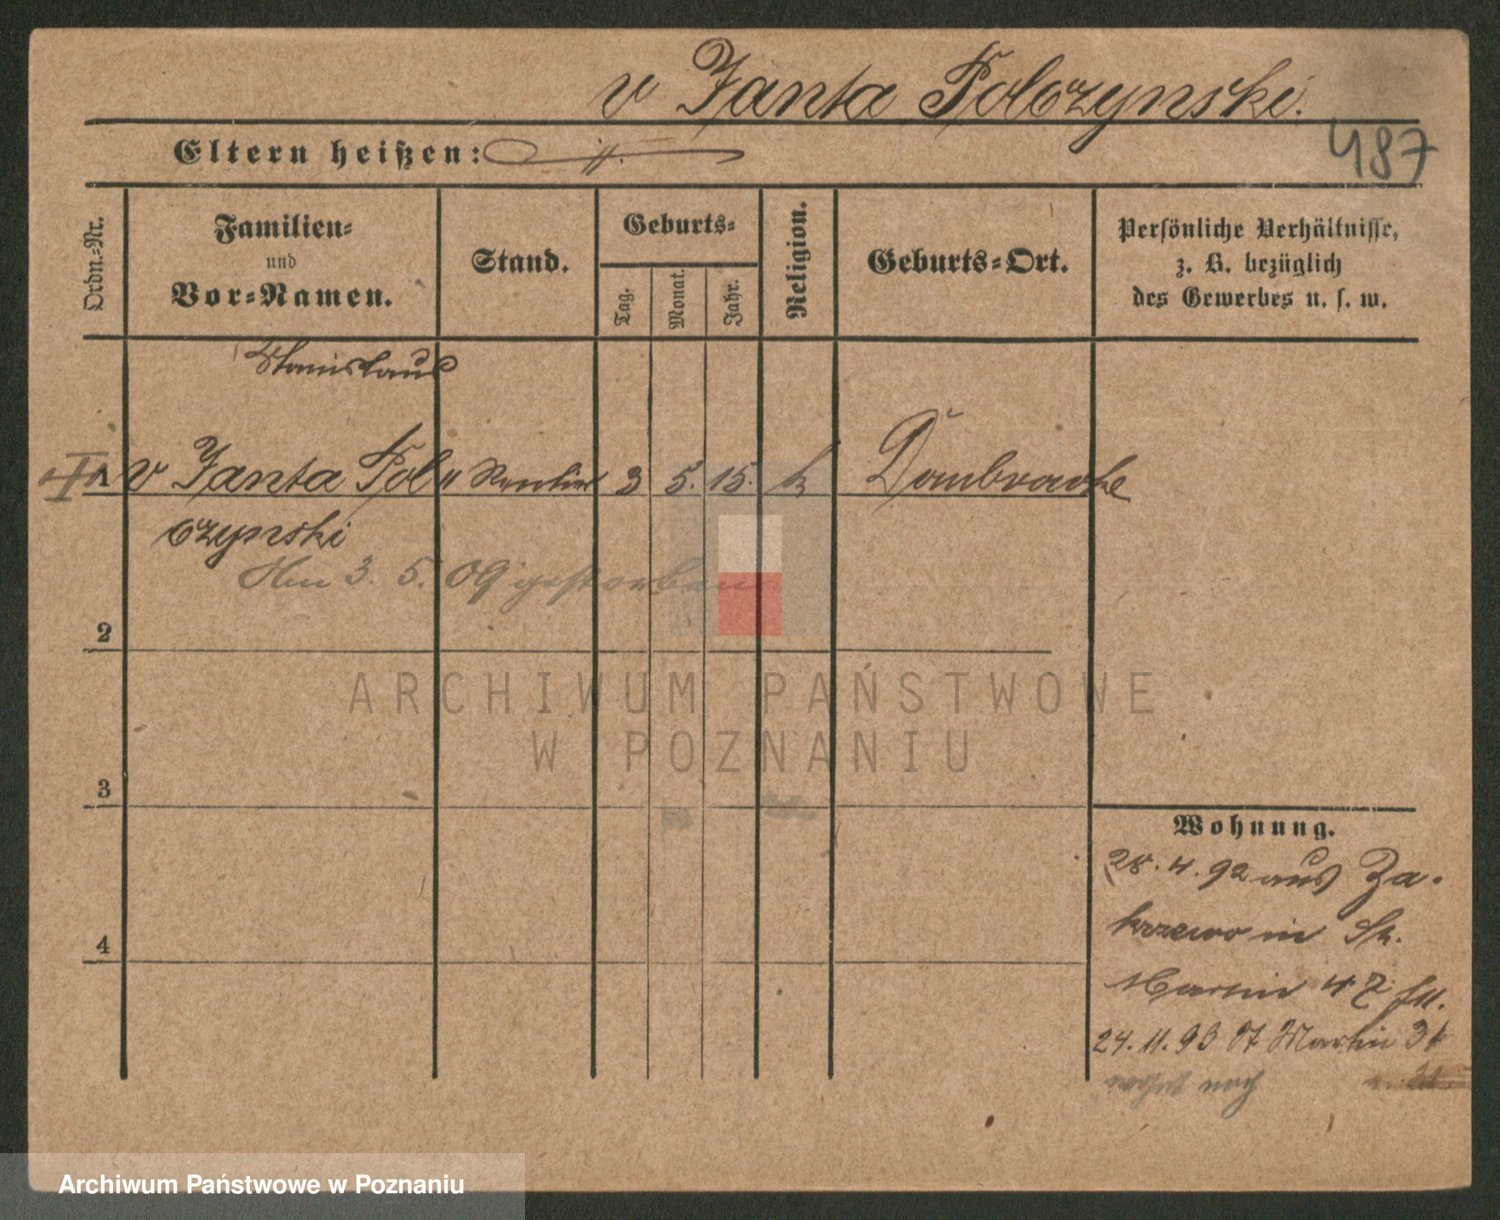 v Janta Polczynski.
Eltern heißen: ./.
487
Ordn.-Nr.
Familien-
und
Vor-Namen.
Stand.
Geburts-
Tag.
Monat.
Jahr.
Religion.
Geburts-Ort.
Persönliche Verhältnisse,
z. B. bezüglich
des Gewerbes u. s. w.
Stanislaus
1 v Janta Pol- Rentier 3 5. 15. k Dombrowke
czynski
Am 3. 5. 09 gestorben
2
ARCHIWUM PAŃSTWOWE
W POZNANIU
3
Wohnung.
28. 4. 92 aus Za-
krzewo in St.
4
Martin 47
24. 11. 93 St Martin
noch
Archiwum Państwowe w Poznaniu